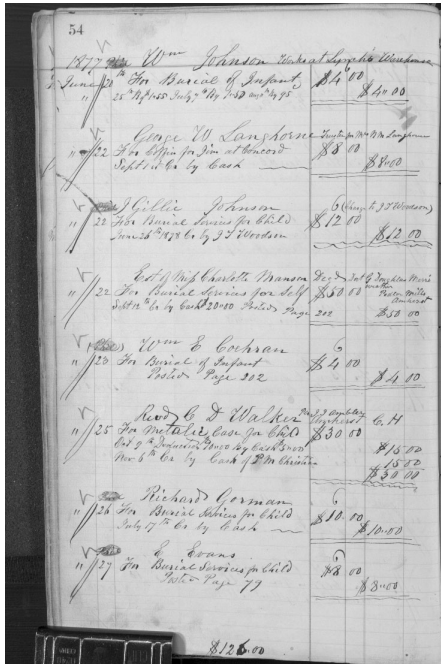 54
1877 Wm Johnson Works at Lynch's Warehouse
June 20th For Burial of Infant $4 00
$4.00
George W Langhorne
" 22 For Coffin for Jim at Concord $8 00
Sept Cr by Cash $8.00
J Gillie Johnson 6 (Charge to J T Woodson)
" 22 For Burial Services for Child $12 00
June 26th 1878 Cr by J T Woodson $12 00
Est of Miss Charlotte Manson Decd
" 22 For Burial Services for Self $50 00
Sept 12th Cr by Cash $20.00 Posted Page 202 $50 00
Wm E Cochran 6
" 23 For Burial of Infant $4 00
Posted Page 202 $4 00
Revd C D Walker Amherst C. H
" 25 For Metalic Case for Child $30 00
Oct 9th by Cash $15 00
Nov 6th Cr by Cash of Christian 15 00
$30 00
Richard Gorman 6
" 26 For Burial Services for Child $10.00
July 17th Cr by Cash $10.00
E Evans 6
" 27 For Burial Services for Child $8 00
Posted Page 79 $8.00
$126.00